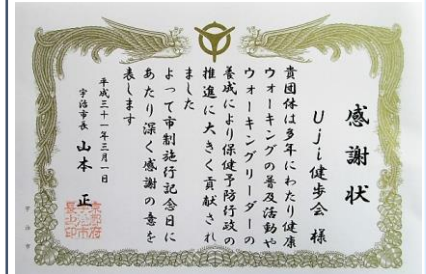 感謝状
Uji健歩会 様
貴団体は多年にわたり健康
ウォーキングの普及活動や
ウォーキングリーダーの
養成により保健予防行政の
推進に大きく貢献され
ました
よって市制施行記念日に
あたり深く感謝の意を
表します
平成三十一年三月一日
宇治市長 山本 正
京都府
宇治市
長之印